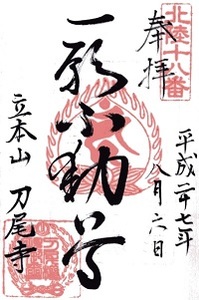 北陸十八番
奉拝
平成二十七年
八月六日
一願不動尊
立本山 刀尾寺